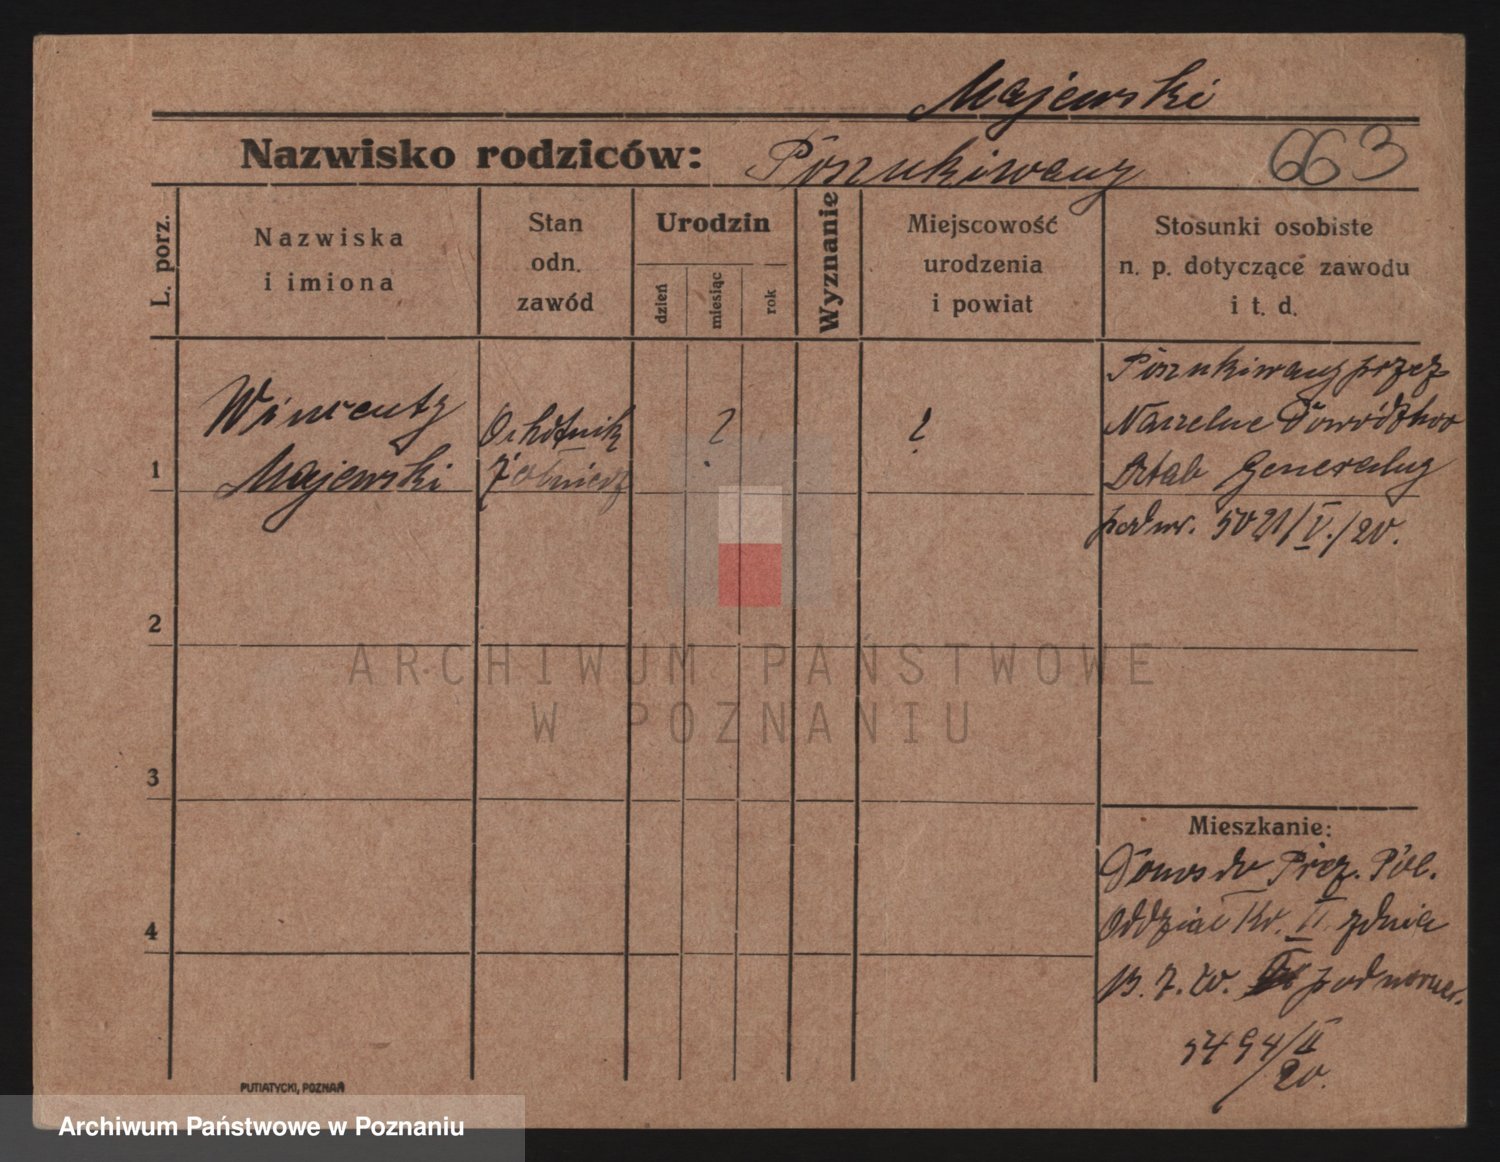 Majewski
Nazwisko rodziców: Poszukiwany 663
L. porz.
Nazwiska
i imiona
Stan
odn.
zawód
Urodzin
dzień
miesiąc
rok
Wyznanie
Miejscowość
urodzenia
i powiat
Stosunki osobiste
n. p. dotyczące zawodu
i t. d.
1
Wincenty
Majewski
Ochotnik
Żołnierz
?
?
Poszukiwany przez
Naczelne Dowództwo
Sztab Generalny
pod nr. 5021/V./20.
2
3
4
Mieszkanie:
Prez. Pol.
Oddział IV. II z dnia
13. 7. 20. pod numer.
5494/II
20.
PUTIATYCKI, POZNAŃ
ARCHIWUM PAŃSTWOWE
W POZNANIU
Archiwum Państwowe w Poznaniu